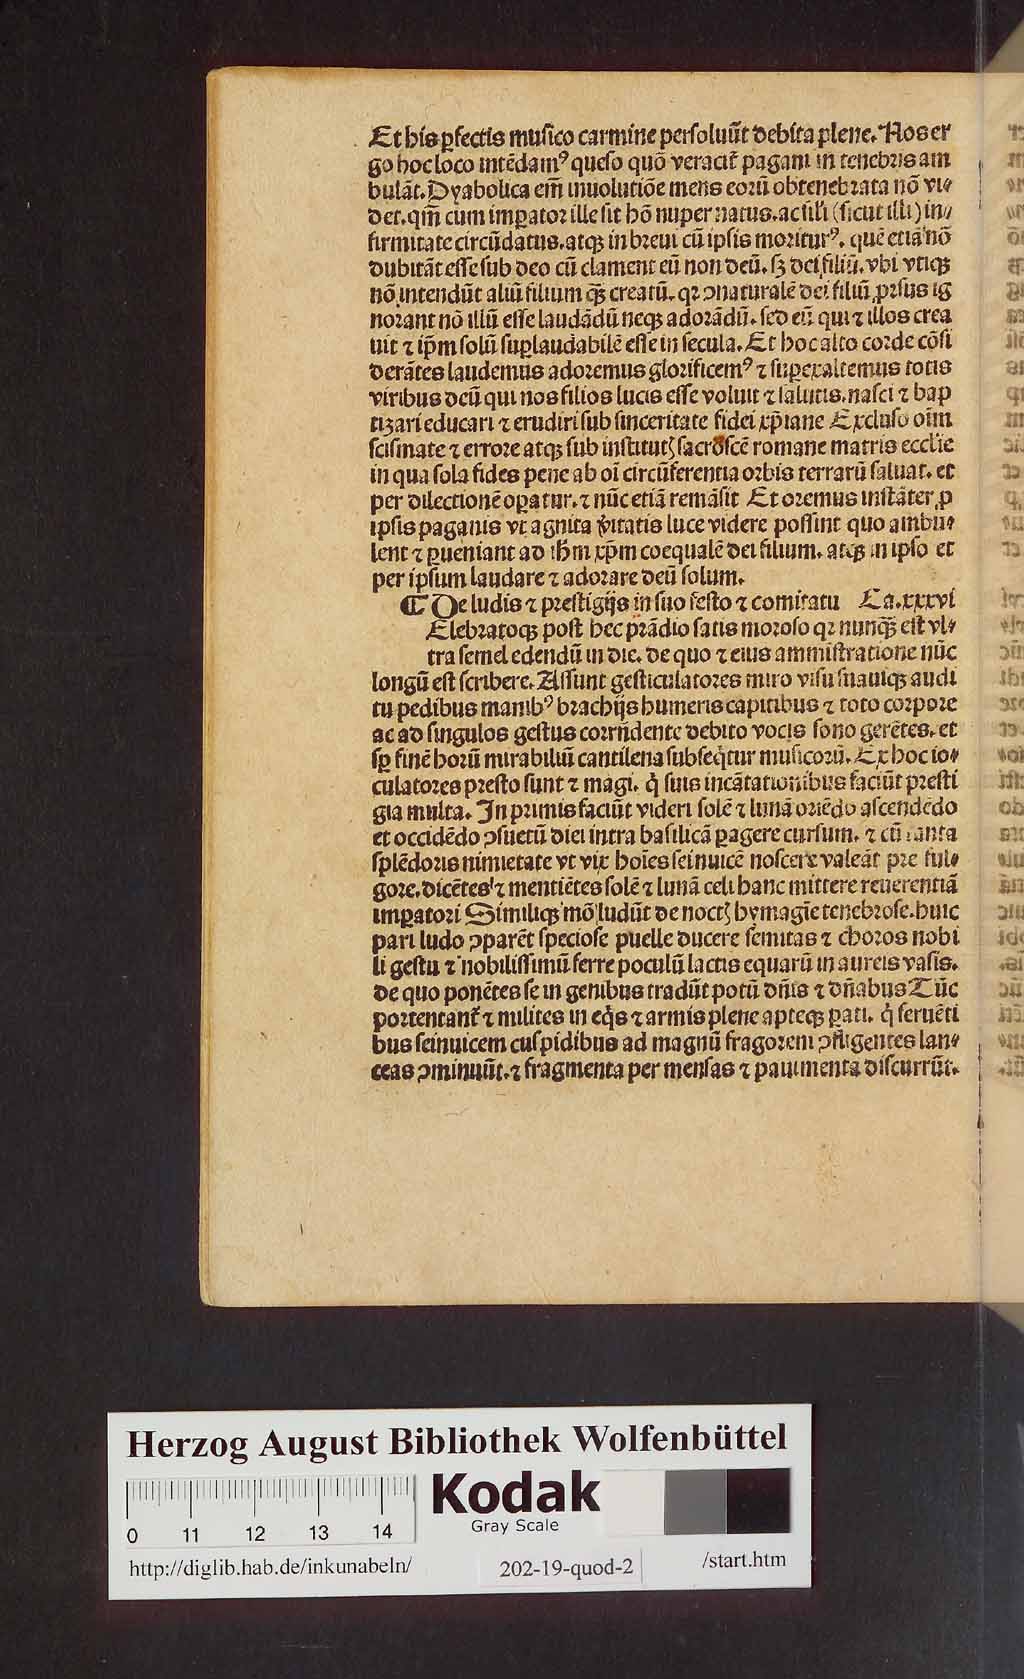 Et his ꝑfectis musico carmine persoluūt debita plene. Nos er
go hoc loco intēdamꝰ queso quō veracit̄ pagani in tenebris am
bulāt. Dyabolica em̄ inuolutiōe mens eorū obtenebrata nō vi⸗
det. qm̄ cum imꝑator ille sit hō nuper natus. ac sil'i (sicut illi) in⸗
firmitate circūdatus. atqꝫ in breui cū ipsis moriturꝰ. quē etiā nō
dubitāt esse sub deo cū clament eū non deū. sꝫ dei filiū. vbi vtiqꝫ
nō intendūt aliū filium qꝫ̄ creatū. qꝛ ↄnaturalē dei filiū ꝓrsus ig
norant nō illū esse laudādū neqꝫ adorādū. sed eū qui ⁊ illos crea
uit ⁊ ip̄m solū suꝑlaudabilē esse in secula. Et hoc alto corde cōsi
derātes laudemus adoremus glorificemꝰ ⁊ suꝑexaltemus totis
viribus deū qui nos filios lucis esse voluit ⁊ salutis. nasci ⁊ bap
tizari educari ⁊ erudiri sub sinceritate fidei xp̄iane Excluso oīm
scismate ⁊ errore atqꝫ sub institutꝭ sacrosctē romane matris ecclie
in qua sola fides pene ab oī circūferentia orbis terrarū saluat. et
per dilectionē oꝑatur. ⁊ nūc etiā remāsit Et oremus instāter ꝓ
ipsis paganis vt agnita v̄itatis luce videre possint quo ambu⸗
lent ⁊ ꝑueniant ad ih̄m xp̄m coequalē dei filium. atqꝫ in ipso et
per ipsum laudare ⁊ adorare deū solum.
¶ De ludis ⁊ prestigijs in suo festo ⁊ comitatu Ca. xxxvi
Elebratoqꝫ post hec prādio satis moroso qꝛ nunqꝫ̄ est vl⸗
tra semel edendū in die. de quo ⁊ eius amministratione nūc
longū est scribere. Assunt gesticulatores miro visu suauiqꝫ audi
tu pedibus manibꝰ brachijs humeris capitibus ⁊ toto corpore
ac ad singulos gestus corrn̄dente debito vocis sono gerētes. et
sꝑ finē horū mirabiliū cantilena subseq̄tur musicorū. Ex hoc io⸗
culatores presto sunt ⁊ magi. q̄ suis incātationibus faciūt presti
gia multa. In primis faciūt videri solē ⁊ lunā oriēdo ascendēdo
et occidēdo ↄsuetū diei intra basilicā ꝑagere cursum. ⁊ cū tanta
splēdoris nimietate vt vix hoīes seinuicē noscere valeāt pre ful⸗
gore. dicētes ⁊ mentiētes solē ⁊ lunā celi hanc mittere reuerentiā
imꝑatori Similiqꝫ mō ludūt de noctꝭ hymagīe tenebrose. huic
pari ludo ↄparēt speciose puelle ducere semitas ⁊ choros nobi
li gestu ⁊ nobilissimū ferre poculū lactis equarū in aureis vasis.
de quo ponētes se in genibus tradūt potū dn̄is ⁊ dn̄abus Tūc
portentant̄ ⁊ milites in eq̄s ⁊ armis plene apteqꝫ ꝑati. q̄ feruēti
bus seinuicem cuspidibus ad magnū fragorem ↄfligentes lan⸗
ceas ↄminuūt. ⁊ fragmenta per mensas ⁊ pauimenta discurrūt.
Herzog August Bibliothek Wolfenbüttel
Kodak
Gray Scale
0 11 12 13 14
http://diglib.hab.de/inkunabeln/ 202-19-quod-2 /start.htm